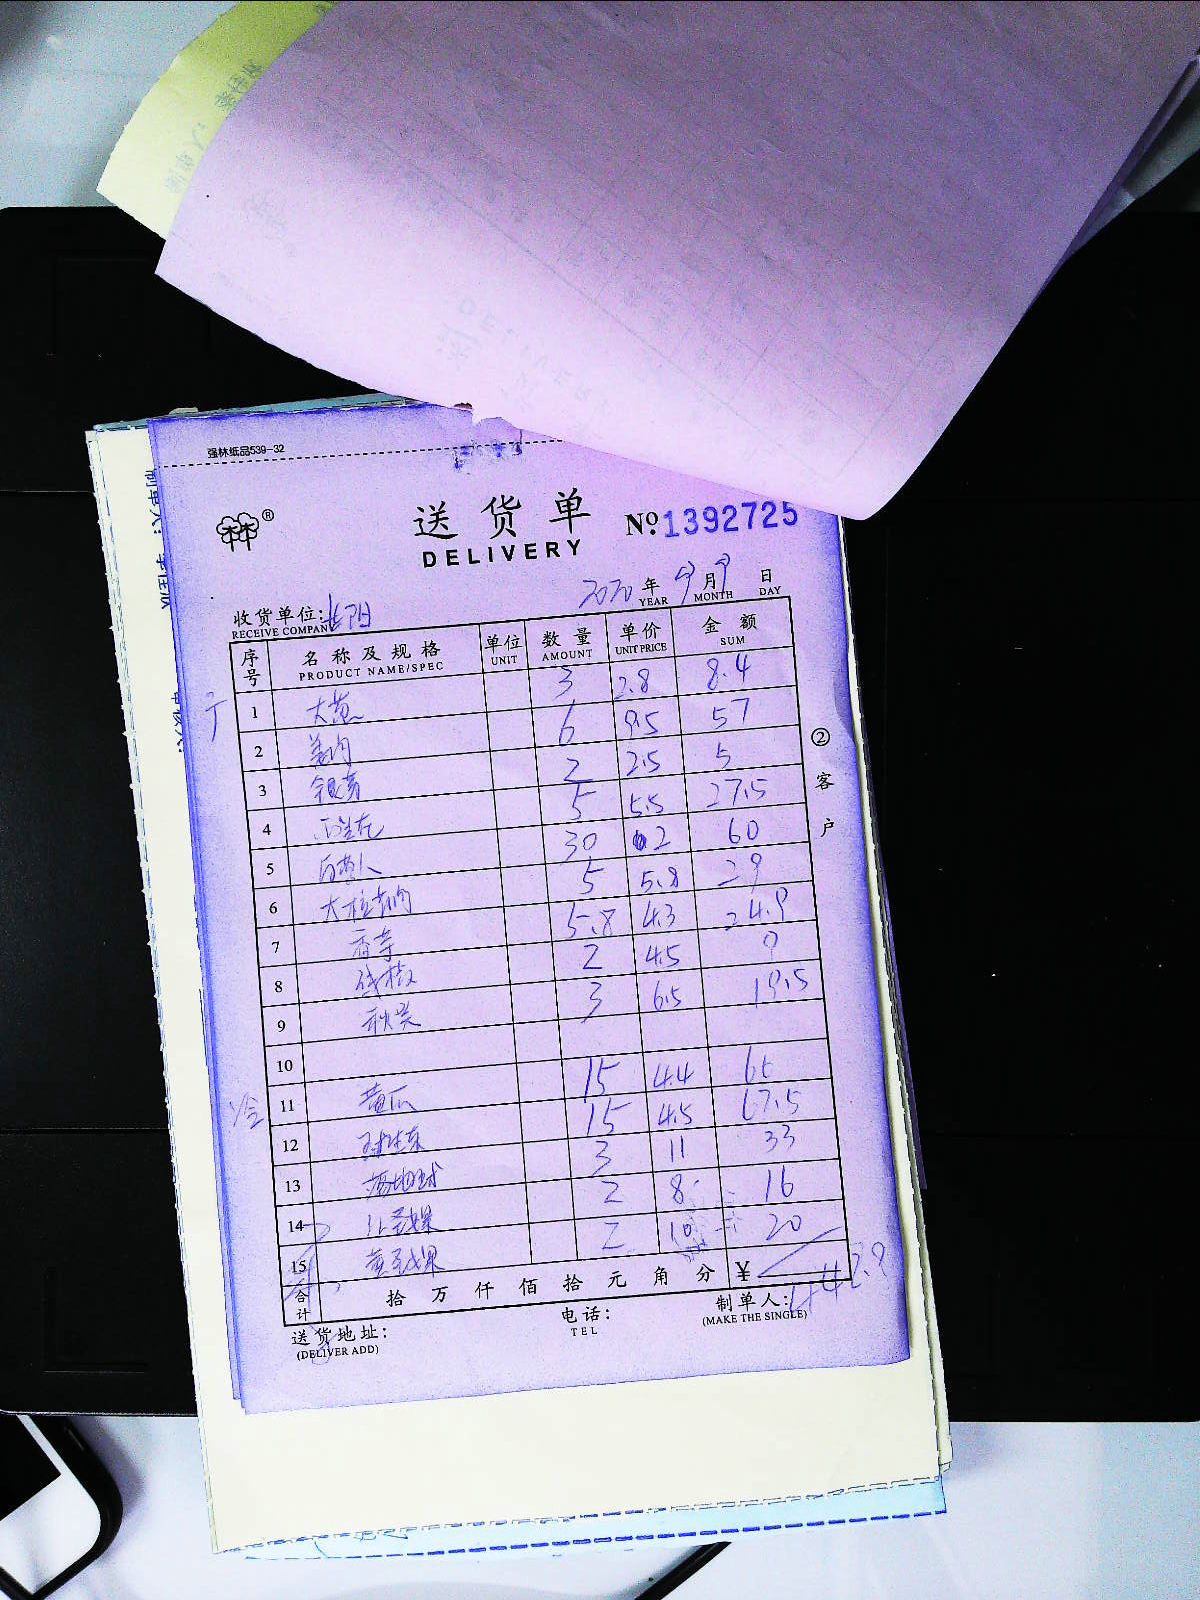 强林纸品539-32
林林®
送货单 № 1392725
DELIVERY
2020年 9月 9日
YEAR MONTH DAY
收货单位:长阳
RECEIVE COMPANY
序号 名称及规格 单位 数量 单价 金额
PRODUCT NAME/SPEC UNIT AMOUNT UNIT PRICE SUM
1 大葱 3 2.8 8.4
2 姜肉 6 9.5 57
3 银芽 2 2.5 5
4 西兰花 5 5.5 27.5
5 白萝卜 30 2 60
6 5 5.8 29
7 香芹 5.8 4.3 24.9
8 线椒 2 4.5 9
9 秋葵 3 6.5 19.5
10
11 黄瓜 15 4.4 66
12 15 4.5 67.5
13 3 11 33
14 红圣女果 2 8 16
15 黄圣女果 2 10 20
冷
合计 拾 万 仟 佰 拾 元 角 分 ¥ 442.9
送货地址: 电话: 制单人:
(DELIVER ADD) TEL (MAKE THE SINGLE)
②客户